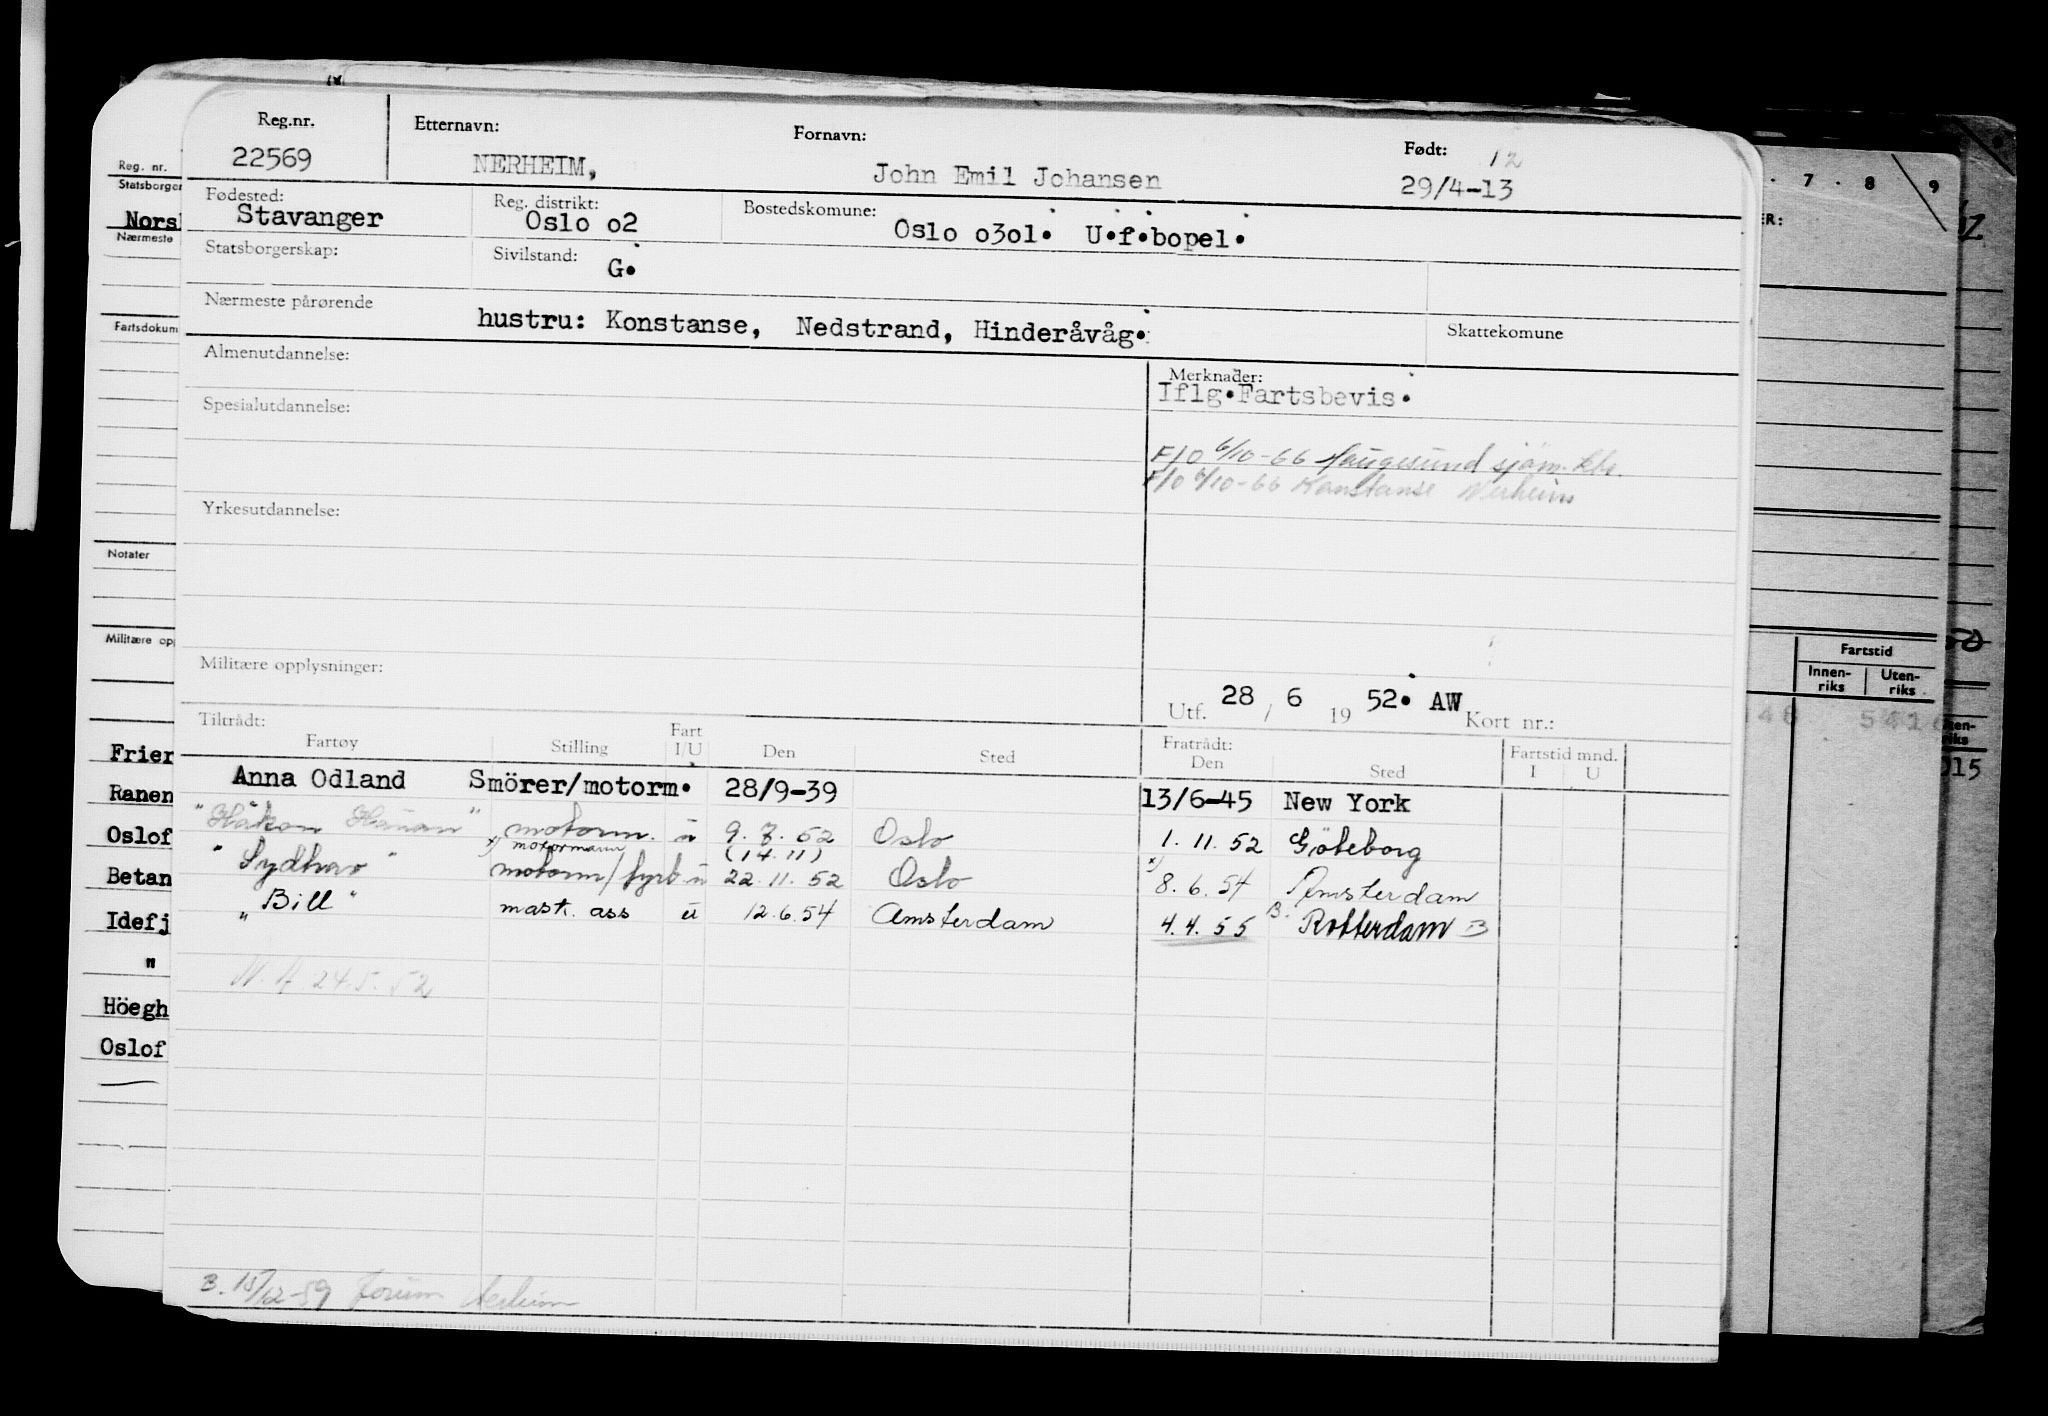 Reg.nr. Etternavn: Fornavn: Født: 12
22569 NERHEIM, John Emil Johansen 29/4-13
Fødested: Reg. distrikt: Bostedskomune:
Stavanger Oslo o2 Oslo o3o1. U.f.bopel.
Statsborgerskap: Sivilstand: G.
Nærmeste pårørende
hustru: Konstanse, Nedstrand, Hinderåvåg.
Skattekomune
Almenutdannelse:
Merknader:
Iflg.Fartsbevis.
Spesialutdannelse:
F/O 6/10-66 Haugesund sjøm. ktr.
F/O 6/10-66 Konstanse Nerheim
Yrkesutdannelse:
Militære opplysninger:
Utf. 28 / 6 19 52. AW Kort nr.:
Tiltrådt: Fratrådt: Fartstid mnd.
Fartøy Stilling Fart I/U Den Sted Den Sted I U
Anna Odland Smörer/motorm. 28/9-39 13/6-45 New York
"Håkon Hauan" motorm. u 9.7.52 Oslo 1.11.52 Göteborg
x) motormann (14.11)
"Sydhav" motorm/fyrb u 22.11.52 Oslo x) 8.6.54 Amsterdam
"Bill" mask. ass u 12.6.54 Amsterdam 4.4.55 B. Rotterdam B
N.A. 24.5.52
B. 15/12-59 Nerheim
Reg. nr.
Statsborger
Nors
Nærmeste
Fartsdokum
Notater
Militære opp
Frier
Ranen
Oslof
Betan
Idefj
"
Höegh
Oslof
7 8 9
ER:
Fartstid
Innen-riks Uten-riks
146 541
015